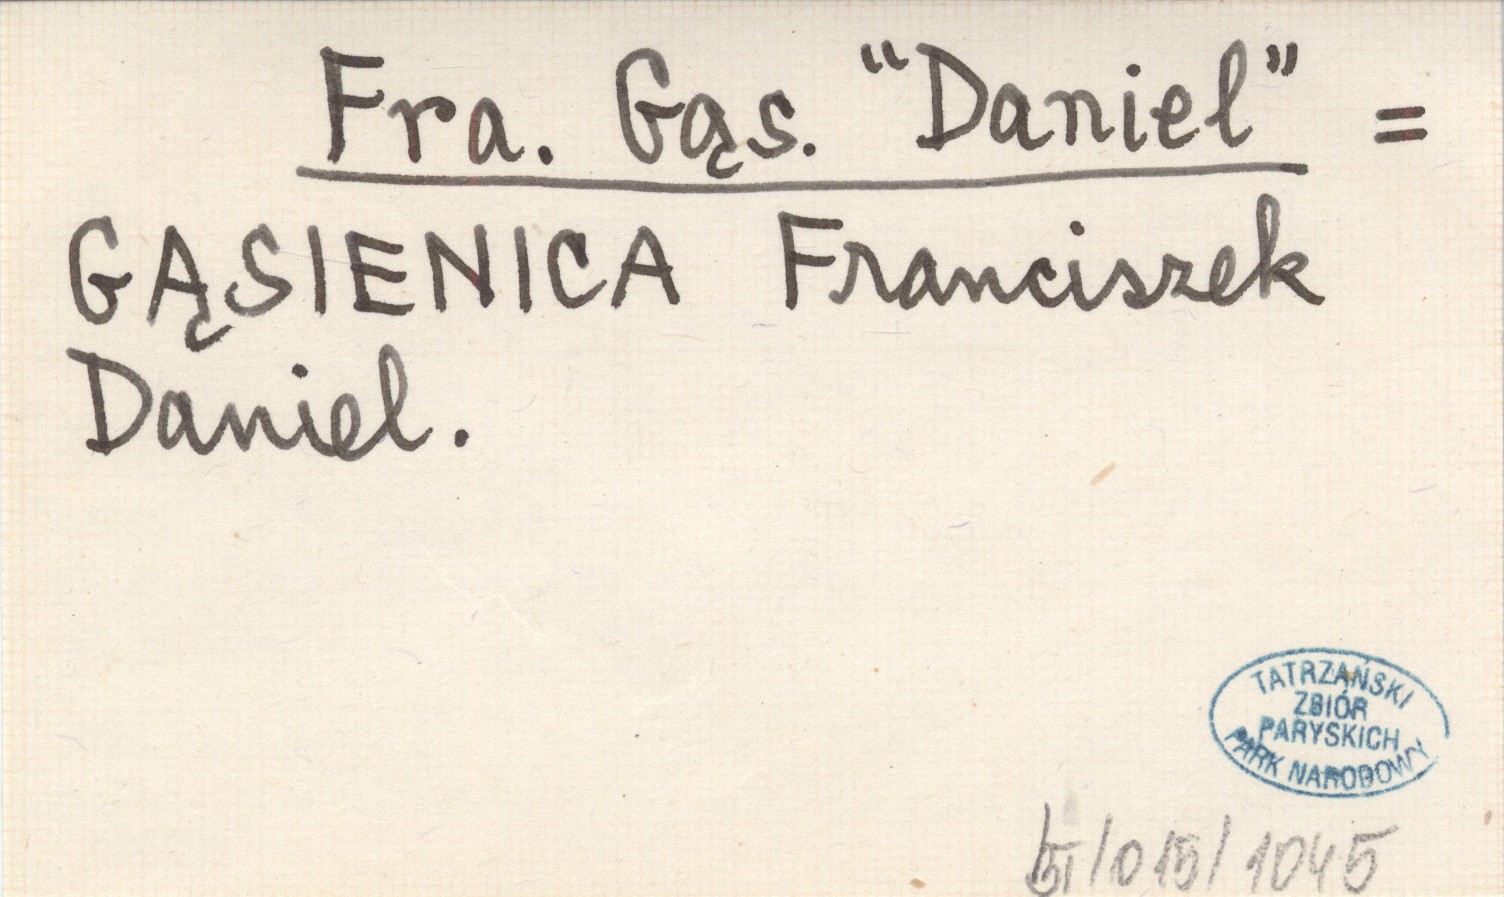 Fra. Gąs. "Daniel" =
GĄSIENICA Franciszek
Daniel.
TATRZAŃSKI
ZBIÓR
PARYSKICH
PARK NARODOWY
/015/1045